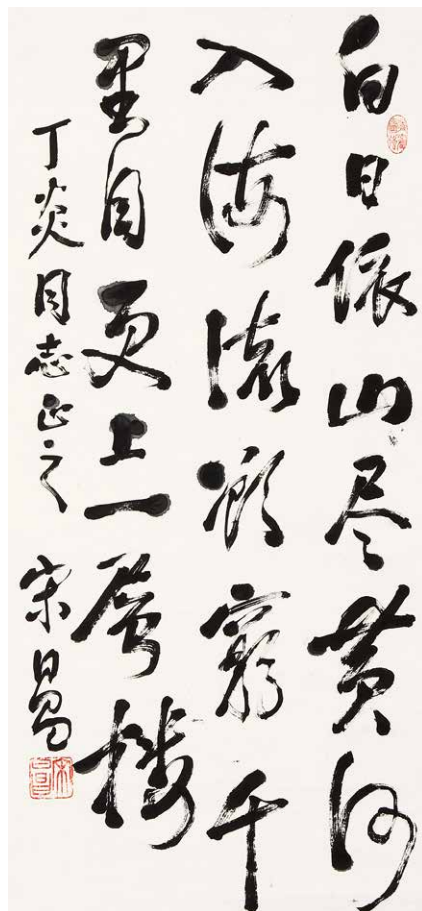 白日依山尽黄河
入海流欲窮千
里目更上一層樓
丁炎同志正之 宋昌